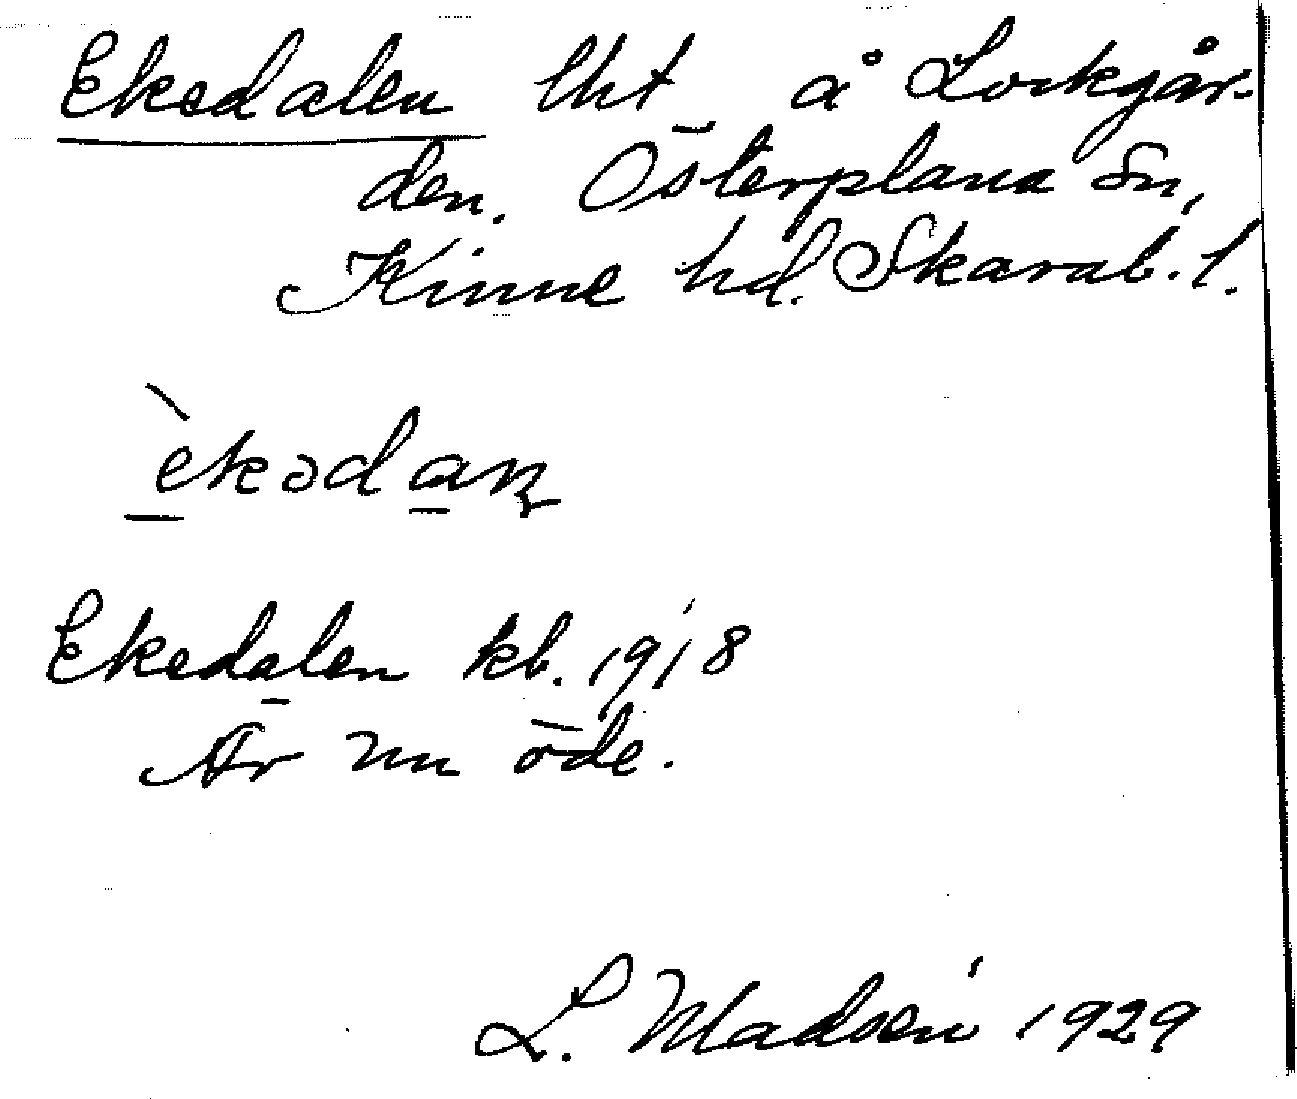 Ekedalen lht å Lockgår-
den. Österplana Sn,
Kinne hd. Skarab. l.
èkədaṇ
Ekedalen kb. 1918
Är nu öde.
L. Madsén 1929